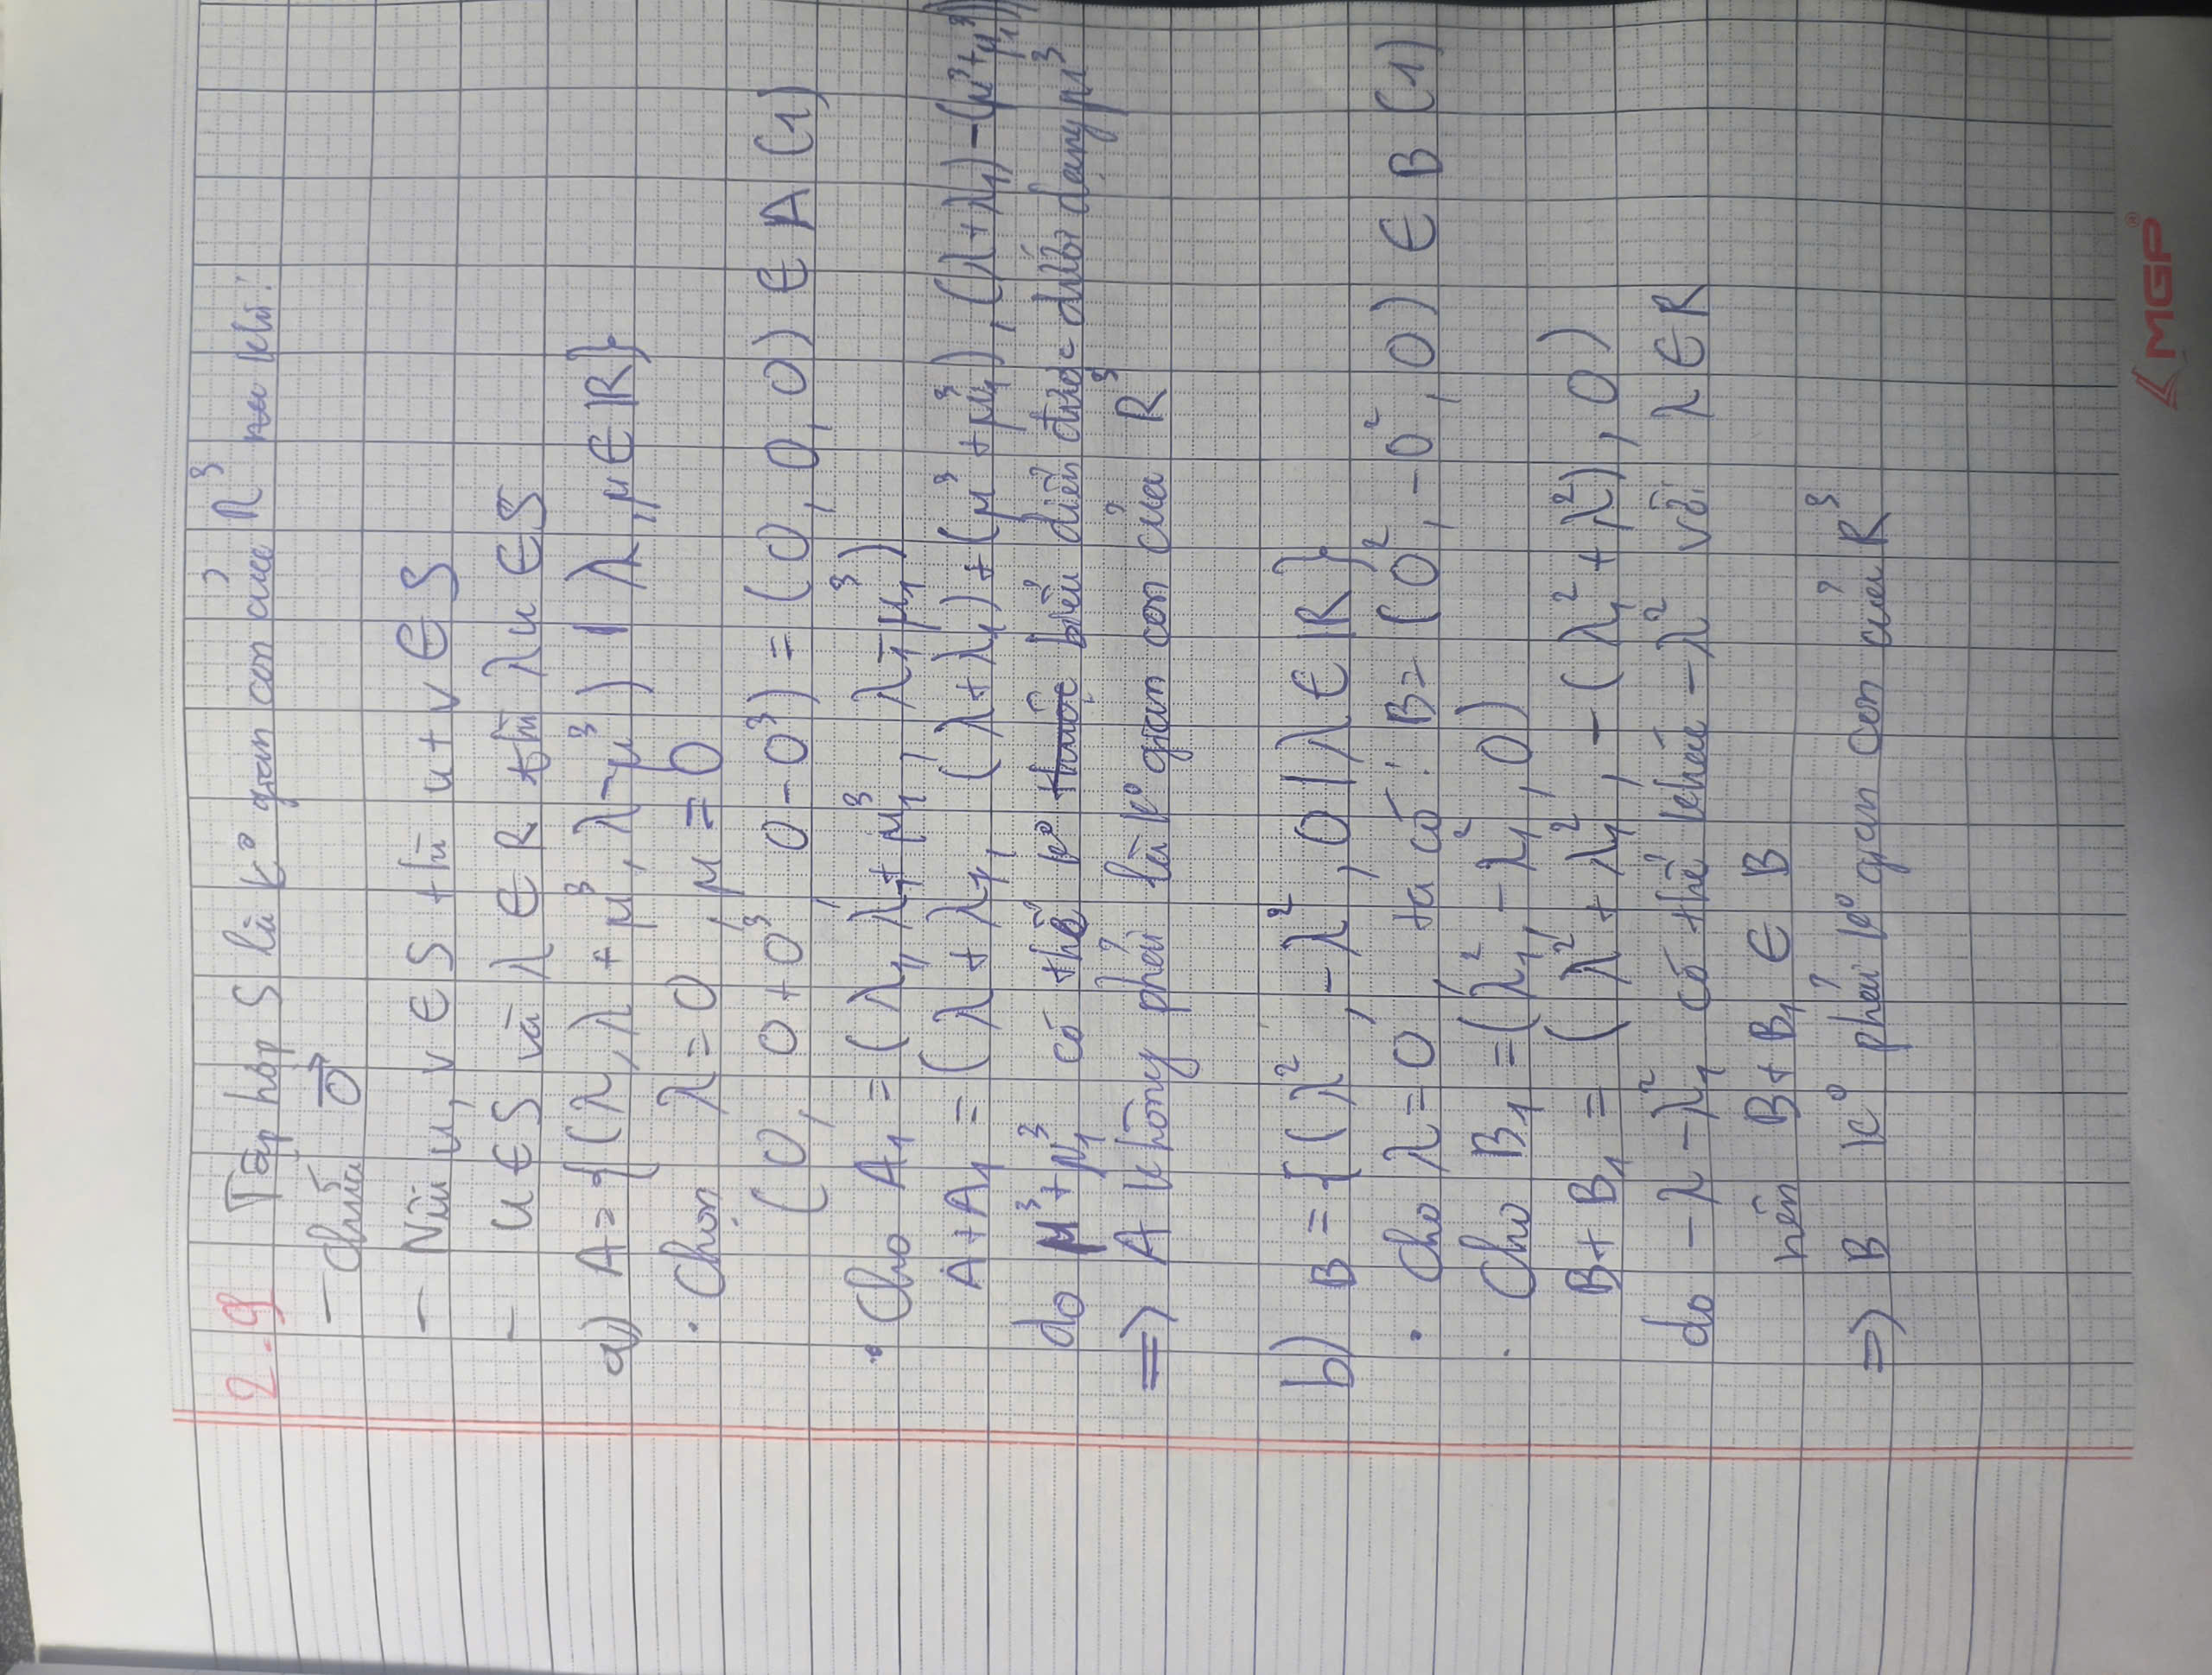 2.9 Tập hợp S là k° gian con của R³ nếu khi:
- chứa 0
- Nếu u, v ∈ S thì u + v ∈ S
- u ∈ S và λ ∈ R thì λu ∈ S
a) A = {(λ, λ + μ³, λ - μ³) | λ, μ ∈ R}
. Chọn λ = 0, μ = 0
(0, 0 + 0³, 0 - 0³) = (0, 0, 0) ∈ A (1)
. Cho A₁ = (λ₁, λ₁ + μ₁³, λ₁ - μ₁³)
A + A₁ = (λ + λ₁, (λ + λ₁) + (μ³ + μ₁³), (λ + λ₁) - (μ³ + μ₁³))
do μ³ + μ₁³ có thể k° thuộc biểu diễn được dưới dạng μ³
=> A không phải là k° gian con của R³
b) B = {(λ², -λ², 0 | λ ∈ R}
. Cho λ = 0, ta có: B = (0², -0², 0) ∈ B (1)
. Cho B₁ = (λ₁² - λ₁², 0)
B + B₁ = (λ² + λ₁², -(λ₁² + λ²), 0)
do -λ - λ₁² có thể khác -λ² với λ ∈ R
nên B + B₁ ∈ B
=> B k° phải k° gian con của R³
MGP®